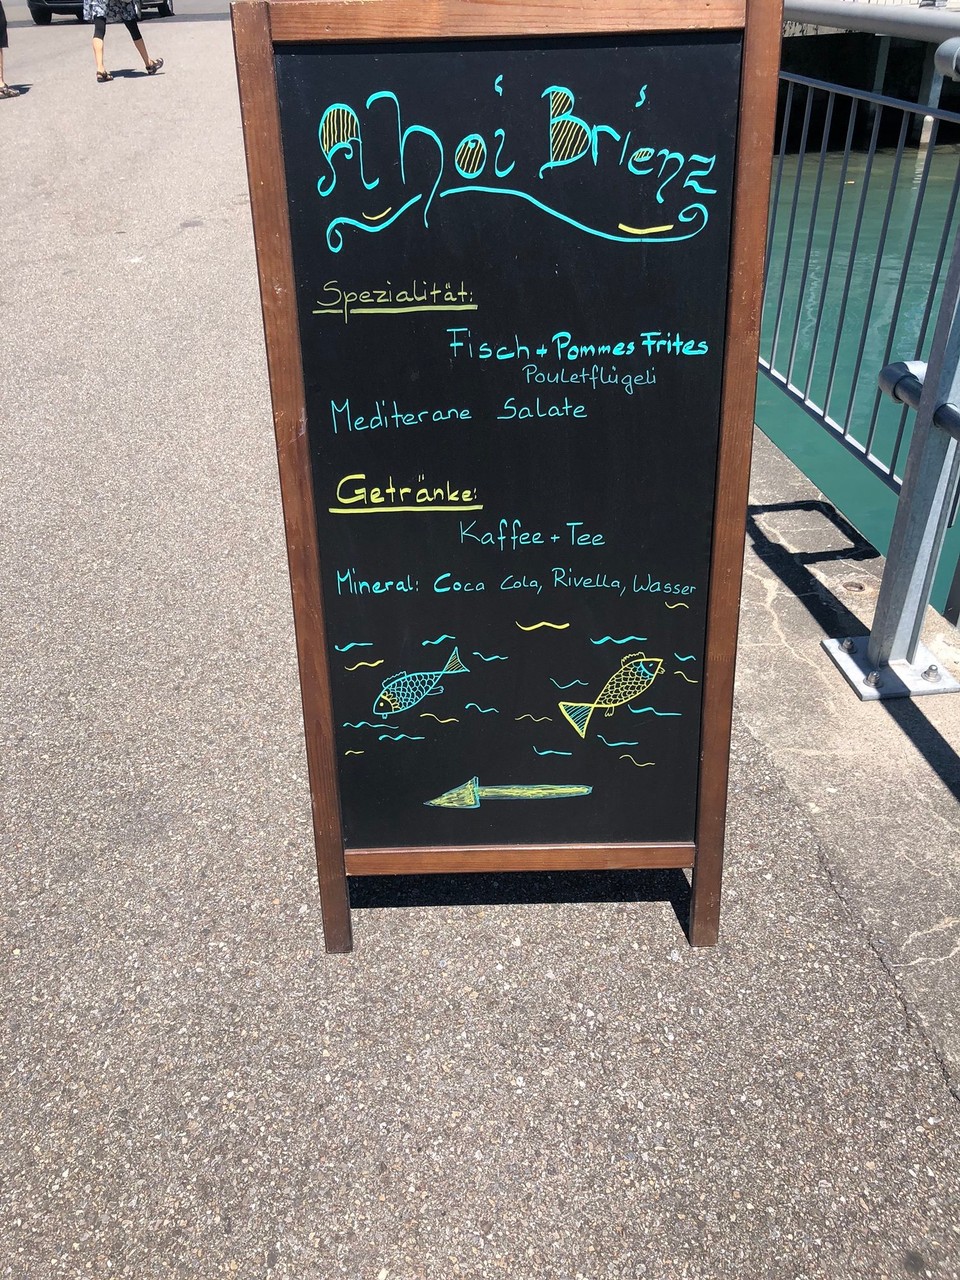 Ahoi Brienz
Spezialität:
Fisch + Pommes Frites
Pouletflügeli
Mediterane Salate
Getränke:
Kaffee + Tee
Mineral: Coca Cola, Rivella, Wasser